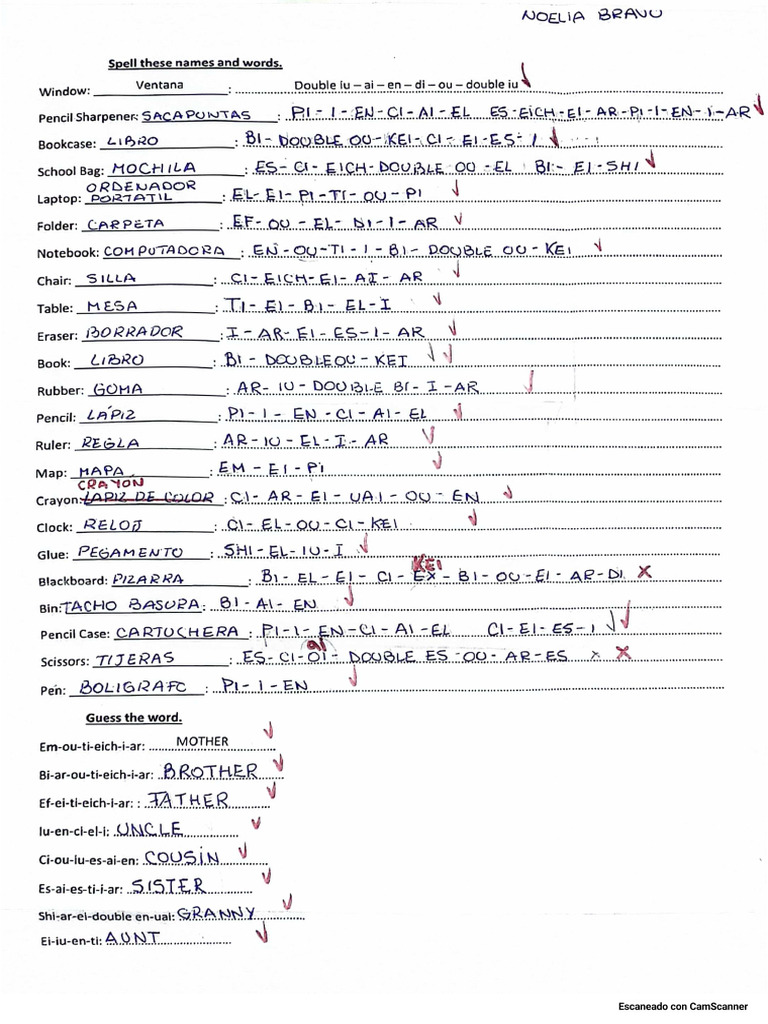 NOELIA BRAVO
Spell these names and words.
Window: Ventana : Double iu – ai – en – di – ou – double iu
Pencil Sharpener: SACAPUNTAS : PI - I - EN - CI - AI - EL ES - EICH - EI - AR - PI - I - EN - I - AR
Bookcase: LIBRO : BI - DOUBLE OU - KEI - CI - EI - ES - I
School Bag: MOCHILA : ES - CI - EICH - DOUBLE OU - EL BI - EI - SHI
ORDENADOR
Laptop: PORTATIL : EL - EI - PI - TI - OU - PI
Folder: CARPETA : EF - OU - EL - DI - I - AR
Notebook: COMPUTADORA : EN - OU - TI - I - BI - DOUBLE OU - KEI
Chair: SILLA : CI - EICH - EI - AI - AR
Table: MESA : TI - EI - BI - EL - I
Eraser: BORRADOR : I - AR - EI - ES - I - AR
Book: LIBRO : BI - DOUBLE OU - KEI
Rubber: GOMA : AR - IU - DOUBLE BI - I - AR
Pencil: LÁPIZ : PI - I - EN - CI - AI - EL
Ruler: REGLA : AR - IU - EL - I - AR
Map: MAPA : EM - EI - PI
CRAYON
Crayon: LAPIZ DE COLOR : CI - AR - EI - UAI - OU - EN
Clock: RELOJ : CI - EL - OU - CI - KEI
Glue: PEGAMENTO : SHI - EL - IU - I
KEI
Blackboard: PIZARRA : BI - EL - EI - CI - EX - BI - OU - EI - AR - DI
Bin: TACHO BASURA : BI - AI - EN
Pencil Case: CARTUCHERA : PI - I - EN - CI - AI - EL CI - EI - ES - I
ai
Scissors: TIJERAS : ES - CI - OI - DOUBLE ES - OU - AR - ES
Pen: BOLIGRAFO : PI - I - EN
Guess the word.
Em-ou-ti-eich-i-ar: MOTHER
Bi-ar-ou-ti-eich-i-ar: BROTHER
Ef-ei-ti-eich-i-ar: : FATHER
Iu-en-ci-el-i: UNCLE
Ci-ou-iu-es-ai-en: COUSIN
Es-ai-es-ti-i-ar: SISTER
Shi-ar-ei-double en-uai: GRANNY
Ei-iu-en-ti: AUNT
Escaneado con CamScanner